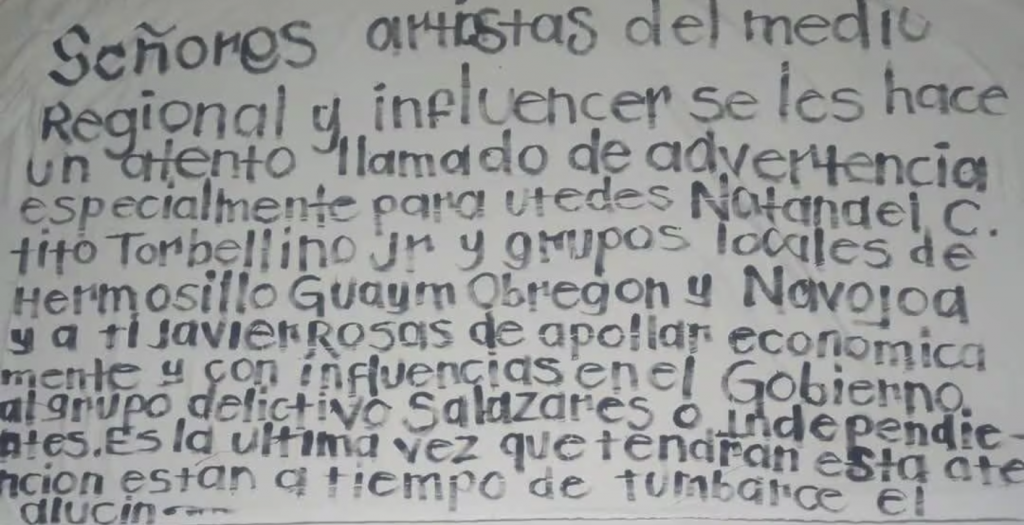 Señores artistas del medio
Regional y influencer se les hace
un atento llamado de advertencia
especialmente para utedes Natanael C.
tito Torbellino Jr y grupos locales de
Hermosillo Guaym Obregon y Navojoa
y a ti Javier Rosas de apollar economica
mente y con influencias en el Gobierno.
al grupo delictivo Salazares o Independie-
ntes. Es la ultima vez que tendran esta ate
ncion estan a tiempo de tumbarce el
alucin